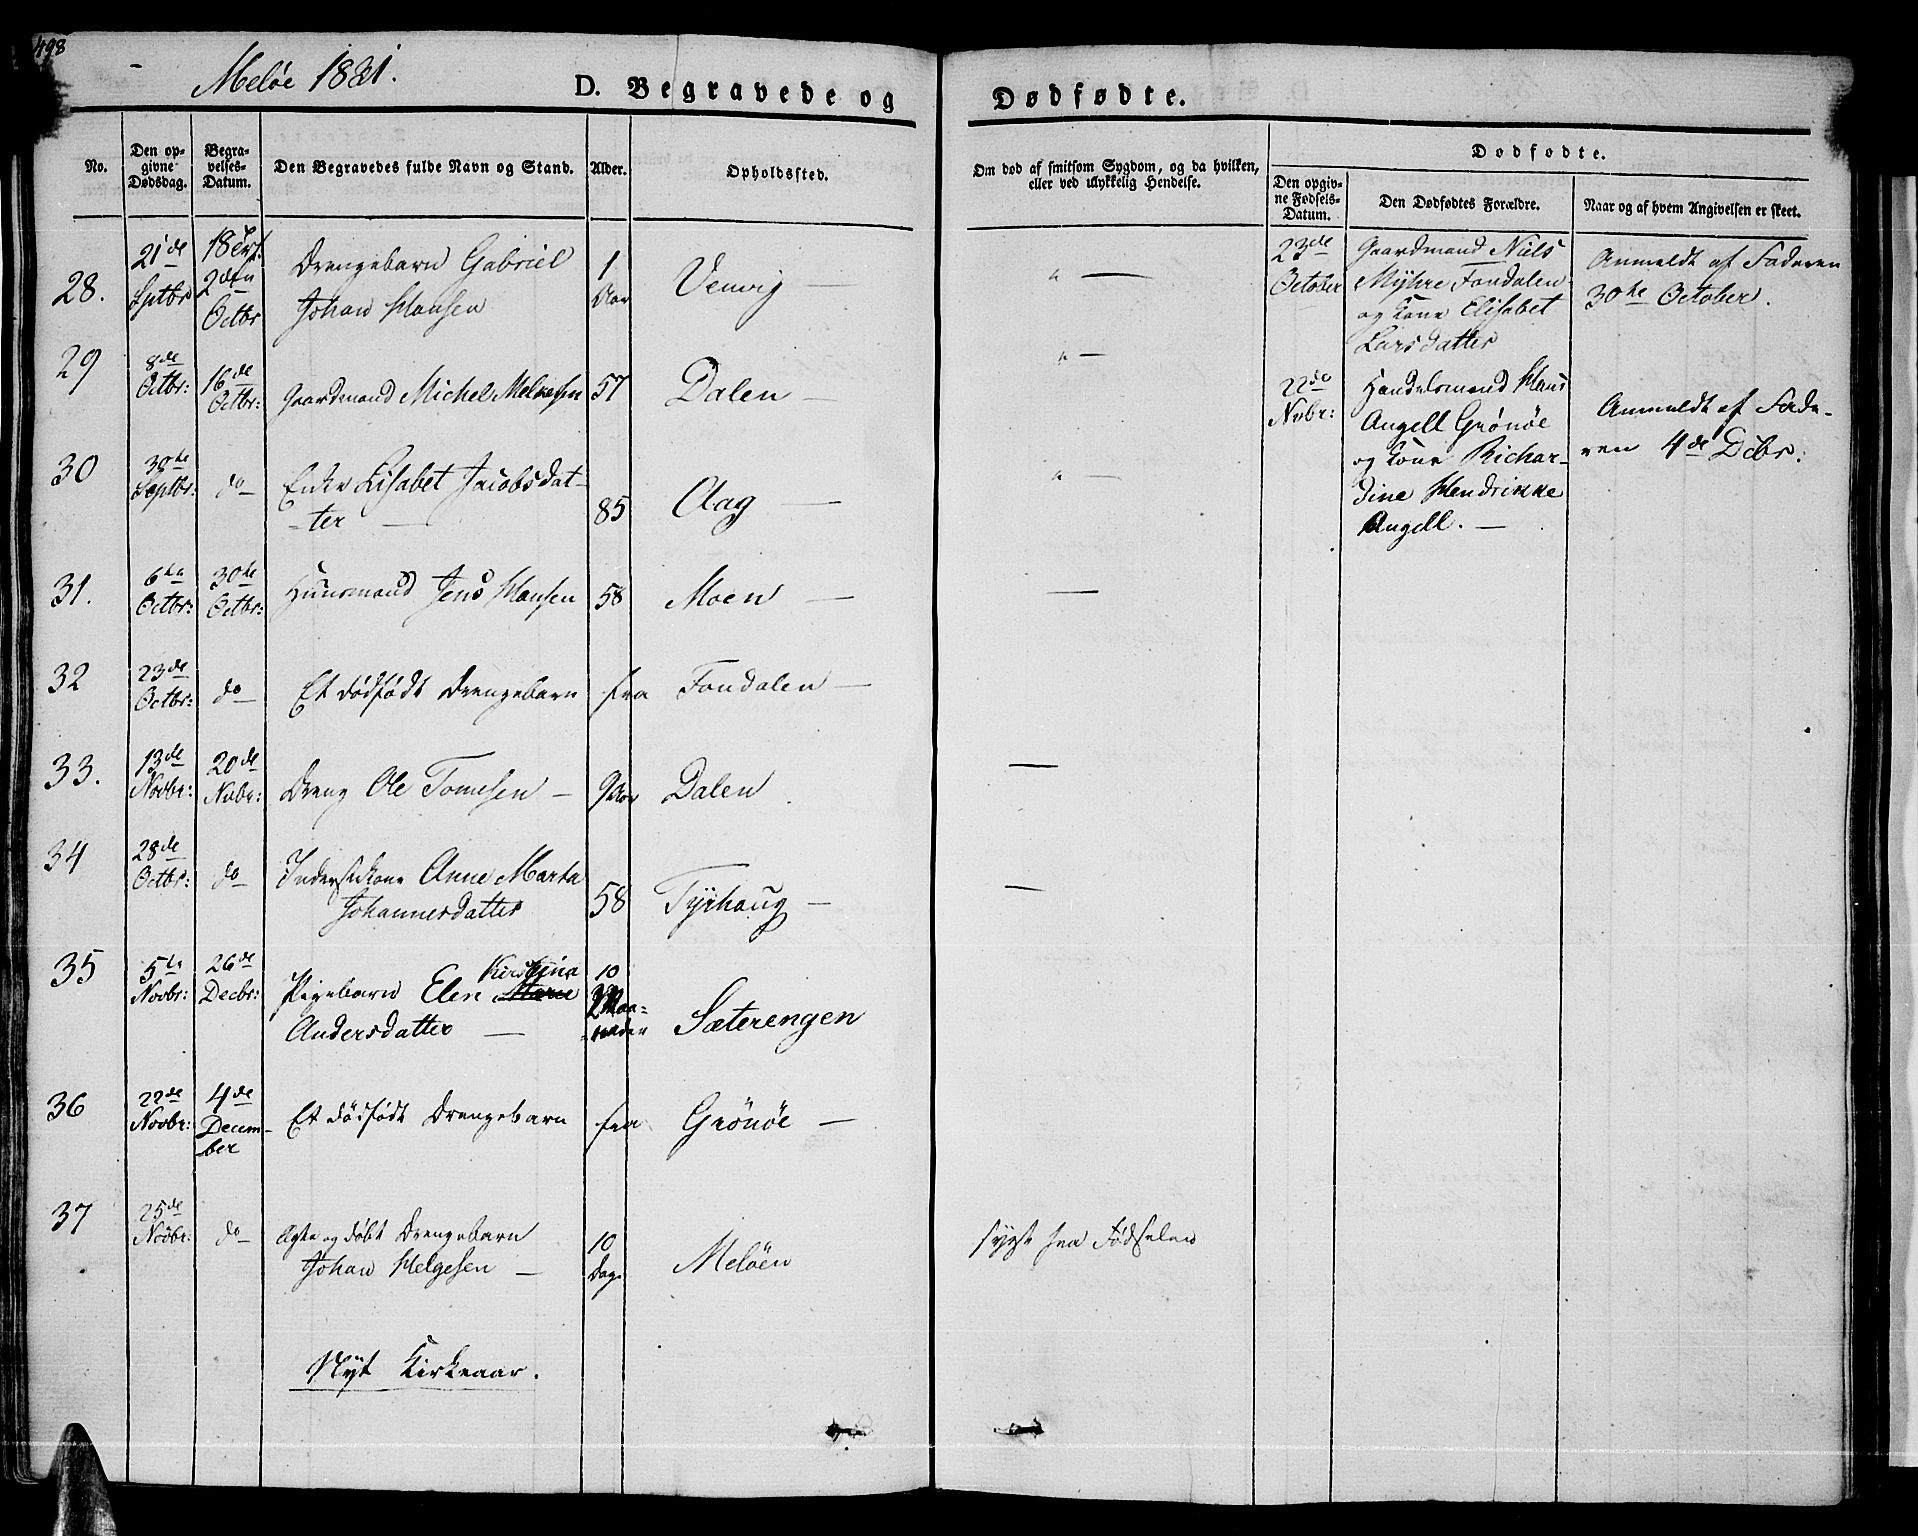 498
Meløe 1831.
D. Begravede og Dødfødte.
No.
Den opgivne Dødsdag.
Begravelses-Datum.
Den Begravedes fulde Navn og Stand.
Alder.
Opholdssted.
Om død af smitsom Sygdom, og da hvilken,
eller ved ulykkelig Hendelse.
Dødfødte.
Den opgivne Fødsels-Datum.
Den Dødfødtes Forældre.
Naar og af hvem Angivelsen er skeet.
28. 21de Sptbr 2den Octbr Drengebarn Gabriel
Johan Hansen 1 Aar Venvig — " —
29 8de Octbr: 16de Octbr: Gaardmand Michel 57 Dalen — " —
30 30te Septbr: do Enke Lisabet Jacobsdat-
-ter — 85 Aag — " —
31. 6te Octbr: 30te Octbr: Huusmand Jens Hansen 58 Moen — —
32 23de Octbr: do Et dødfødt Drengebarn fra Fondalen —
33. 13de Novbr: 20de Nvbr: Dreng Ole Tomesen — 9 Aar Dalen —
34 28de Octbr: do Inderstkone Anne Marta
Johannesdatter 58 Tyrhaug — —
35 5te Novbr: 26de Decbr: Pigebarn Elen Marie
Andersdatter — 10 Maa-
-neder Sæterengen
36 22de Novbr: 4de Decem-
-ber Et dødfødt Drengebarn fra Grönöe —
37 25de Novbr: do Ægte og döbt Drengebarn
Johan Helgesen — 10 Dage Melöen sygt fra Fødselen
Nyt Kirkeaar.
23de October
Gaardmand Niels
Myhre Fondalen
og Kone Elisabet
Larsdatter
Anmeldt af Faderen
30te October.
22de Nvbr:
Handelsmand Hans
Angell Grönöe
og Kone Richar-
dine Hendrikke
Angell. —
Anmeldt af Fade-
ren 4de Dcbr: